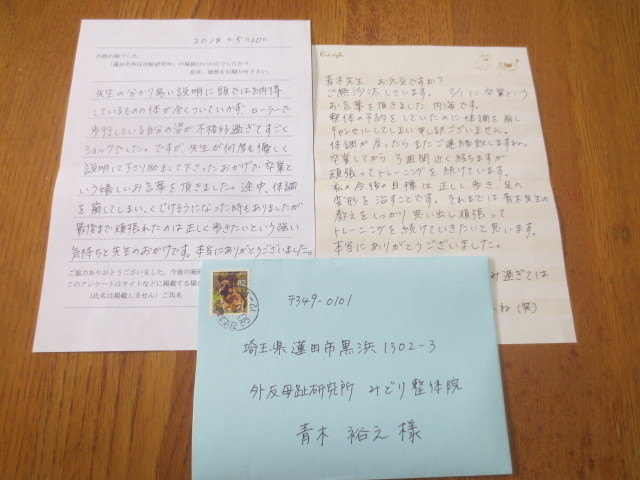 2018年5月20日
お疲れ様でした。
「蓮田市外反母趾研究所」の施術はいかがでしたか？
是非、感想をお聞かせ下さい。
先生の分かり易い説明に頭では納得
しているものの体が全くついていかず、ローラーで
歩行している自分の姿が不格好過ぎてすごく
ショックでした。ですが、先生が何度も優しく
説明して下さり励まして下さったおかげで、卒業と
いう嬉しいお言葉を頂きました。途中、体調
を崩してしまい、くじけそうになった時もありましたが
最後まで頑張れたのは正しく歩きたいという強い
気持ちと先生のおかげです。本当にありがとうございました。
ご協力ありがとうございました。今後の施術
このアンケートはサイトなどに掲載する場
（氏名は掲載しません）ご氏名
青木先生 お元気ですか？
ご無沙汰しています。5/1に卒業という
お言葉を頂きました 内海です。
整体の予約をしていたのに体調を崩し
キャンセルしてしまい申し訳ございません。
体調が戻ったらまたご連絡致しますね。
卒業してから3週間近く経ちますが
頑張ってトレーニングを続けています。
私の今後の目標は正しく歩き、足の
変形を治すことです。それまでは青木先生の
教えをしっかり思い出し頑張って
トレーニングを続けていきたいと思います。
本当にありがとうございました。
み過ぎては
ね（笑）
〒349-0101
埼玉県蓮田市黒浜1302-3
外反母趾研究所 みどり整体院
青木 裕之 様